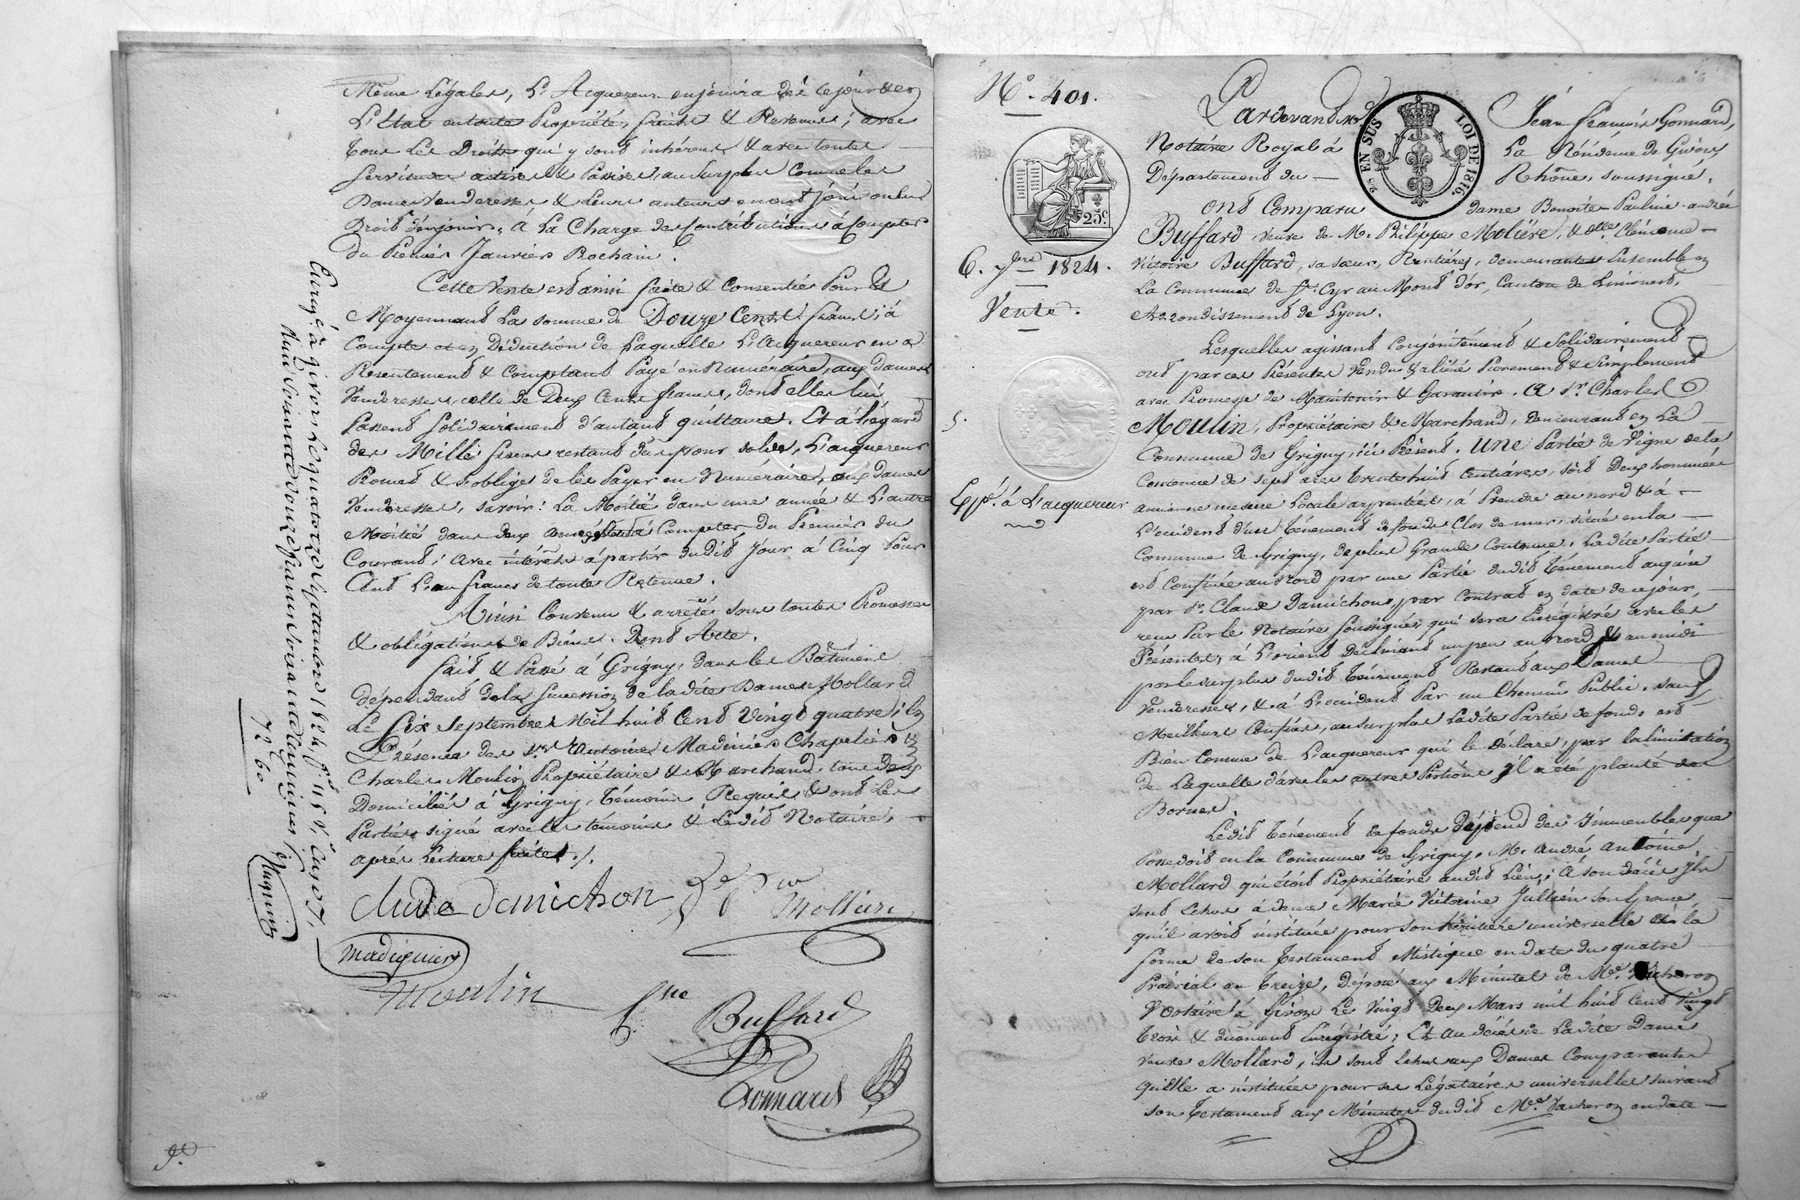 Même Légales, L'Acquereur en jouira dès ce jour & en
L'Etat en toute Propriété, fruits & Revenus, avec
tous les Droits qui y sont inhérens & avec toutes
servitudes actives & Passives, au surplus comme les
Dames Venderesses & Leurs auteurs en ont joui ou eu
Droit d'en jouir, à La Charge des Contributions à Compter
du Premier Janvier Prochain.
Cette Vente est ainsi faite & Consentie Pour &
Moyennant La somme de Douze Cents francs; à
Compte & en Déduction de Laquelle L'Acquereur en a
Présentement & Comptant Payé en Numéraire, aux dames
Venderesses, celle de Deux Cents francs, dont elles lui
Passent solidairement d'autant quittance. Et à l'égard
des Mille francs restant dus pour solde, L'acquereur
Promet & s'oblige de les Payer en Numéraire, aux dames
Venderesses, savoir: La Moitié dans une année & L'autre
Moitié dans deux années à Compter du Premier du
Courant; avec intérêts à partir dudit Jour à Cinq Pour
Cent L'an francs de toute Retenue.
Ainsi Convenu & arrêté sous toutes Promesses
& obligations de Biens. Dont Acte.
fait & Passé à Grigny, dans les Bâtimens
dépendants de la succession de ladite Dame Mollard
Le six septembre Mil huit Cent Vingt quatre; En
Présence de Mrs Antoine Madinier Chapelier &
Charles Moulin Propriétaire & Marchand, tous deux
Domiciliés à Grigny, témoins Requis & ont Les
Parties signé avec les témoins & Ledit Notaire,
après Lecture faite./.
Claude damichon
Ve Molliere
madignier
Moulin
Buffard
Gonnard
Enrgé à Givors Le quatorze septembre 1824
72 60
N.° 401.
25c
6. 7bre 1824.
Vente.
5.
Expon. à L'acquereur
EN SUS LOI DE 1816.
Pardevant Me Jean François Gonnard,
Notaire Royal à La Résidence de Givors
Département du Rhône, soussigné,
ont Comparu dame Benoite Pauline andrée
Buffard, veuve de M. Philippe Molière, & Dlle. Clémence
Victoire Buffard, sa sœur, Rentières, demeurantes Ensemble en
La Commune de St. Cyr au Mont d'or, Canton de Limonest,
Arrondissement de Lyon.
Lesquelles agissant Conjointement & Solidairement
ont par ces Présentes Vendu & aliéné Purement & Simplement
avec Promesse de Maintenir & Garantir, à Sr. Charles
Moulin, Propriétaire & Marchand, demeurant en La
Commune de Grigny, ici Présent, une Partie de Vigne de la
Contenue de sept ares trente huit Centiares, soit Deux hommées
ancienne mesure Locale arpentées, à Prendre au nord & à
L'occident d'un ténement de fonds Clos de mur, situé en la
Commune de Grigny, de plus Grande Contenue. Ladite Partie
est Confinée au Nord par une Partie dudit tènement acquise
par Sr. Claude Damichon, par Contrat en date de ce jour,
reçu Par le Notaire soussigné, qui sera Enrégistré avec les
Présentes, à L'orient déclinant un peu au nord & au midi
par le surplus dudit tènement Restant aux Dames
Venderesses, & à L'occident Par un Chemin Public, sauf
Meilleurs Confins, au surplus Ladite Partie de fonds est
Bien Connue de L'acquereur qui le Déclare, par la limitation
de Laquelle d'avec les autres Portions il a été planté des
Bornes.
Ledit tènement de fonds Dépend des Immeubles que
Possedoit en la Commune de Grigny, M. André Antoine
Mollard qui étoit Propriétaire audit Lieu; à son décès Ils
sont échus à dame Marie Victoire Jullien son Epouse
qu'il avoit instituée pour son héritière universelle dans la
forme de son testament Mistique en date du quatre
Prairial an treize, Déposé aux Minutes de Me. Vacheron
Notaire à Givors Le Vingt Deux Mars mil huit Cent Vingt
trois & dûement Enrégistré; Et au décès de Ladite Dame
veuve Mollard, ils sont échus aux Dames Comparantes
qu'elle a instituées pour ses Légataires universelles suivant
son testament aux Minutes dudit Me. Vacheron en date